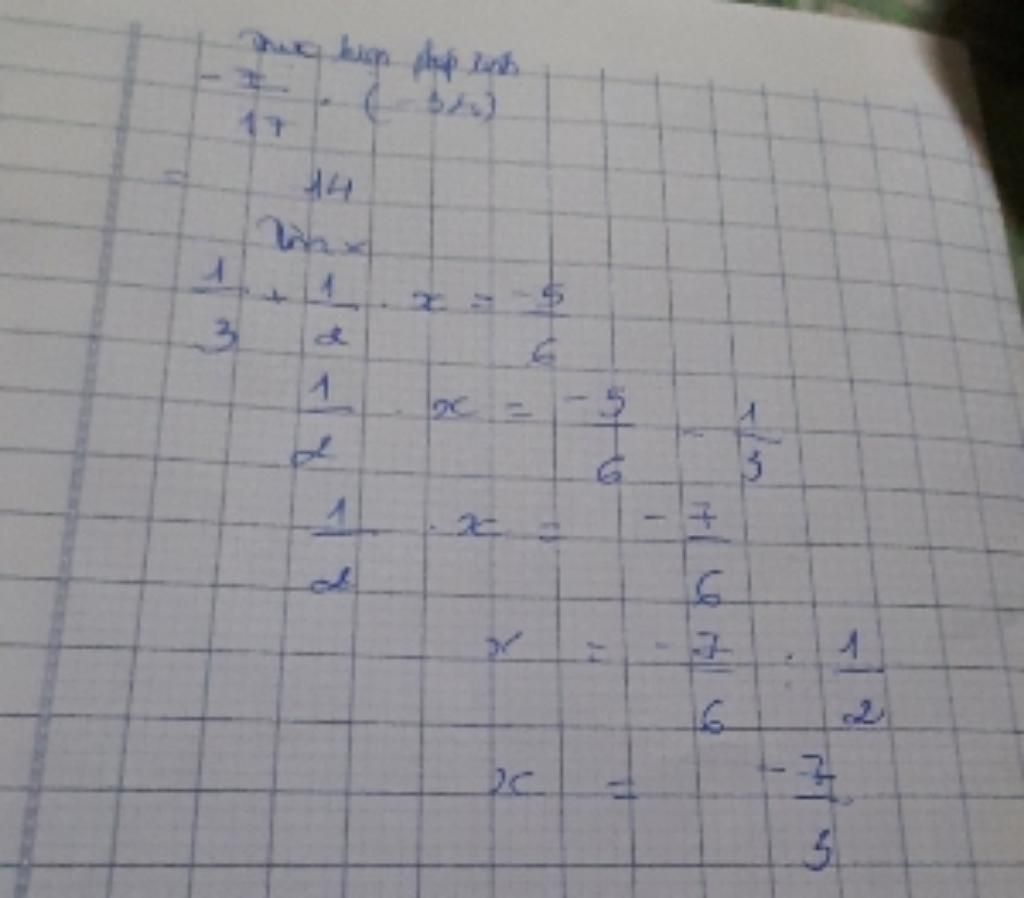 Thực hiện phép tính
-7/17 . (-34)
= 14
Tìm x
1/3 + 1/2 . x = -5/6
1/2 . x = -5/6 - 1/3
1/2 . x = -7/6
x = -7/6 : 1/2
x = -7/3